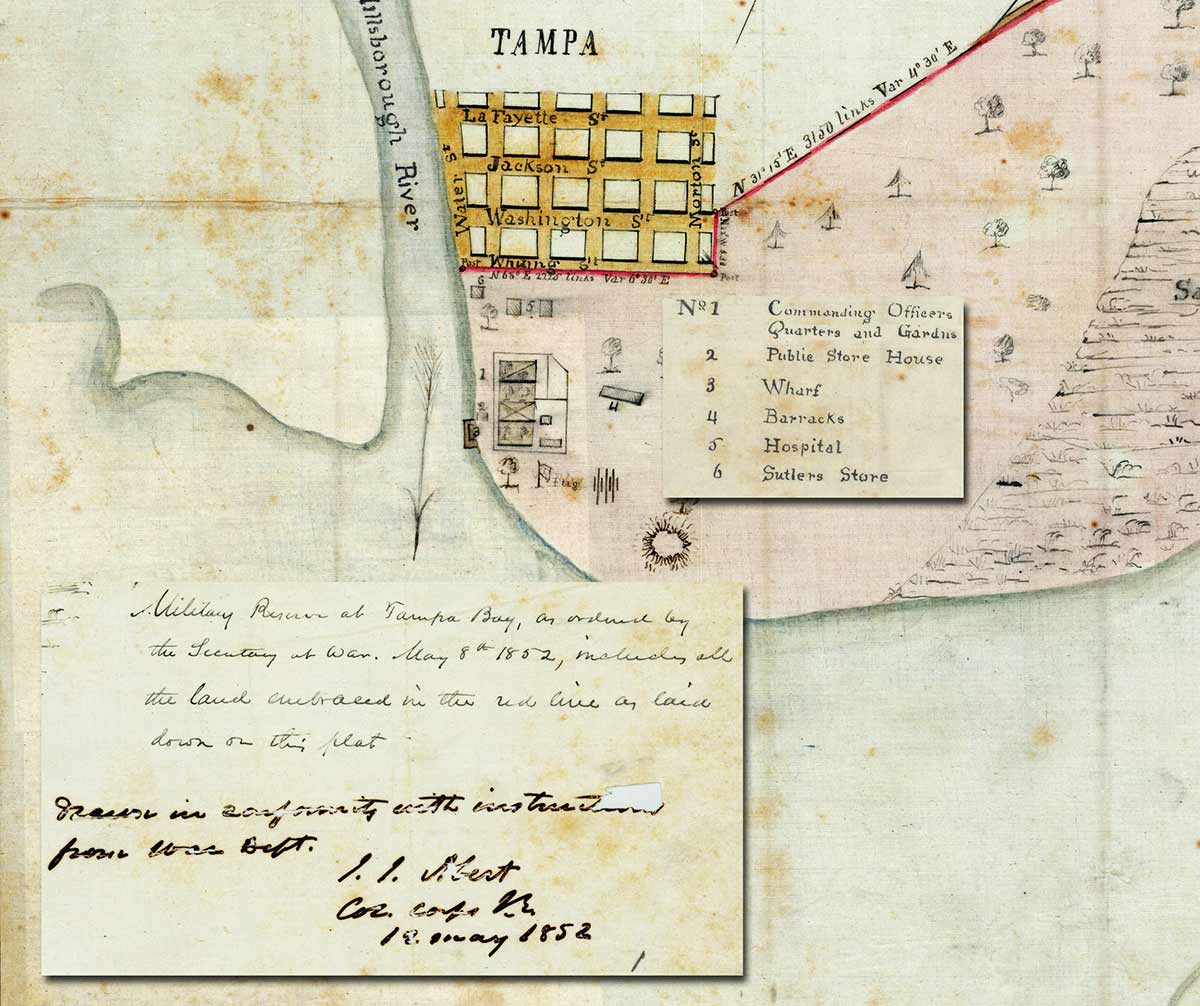 TAMPA
Hillsborough River
La Fayette St
Jackson St
Washington St
Whiting St
Water St
Morton St
N 31° 15' E 3150 links Var 4° 30' E
Post
Post
Post
6
5
1
2
3
4
Flag
No. 1 Commanding Officers
Quarters and Gardns
2 Public Store House
3 Wharf
4 Barracks
5 Hospital
6 Sutlers Store
Military Reserve at Tampa Bay, as ordered by
the Secretary at War. May 8th 1852, includes all
the land embraced in the red line as laid
down on this plat
Drawn in conformity with instructions
from War Dept.
J. J. Abert
Col. corps
12 may 1852